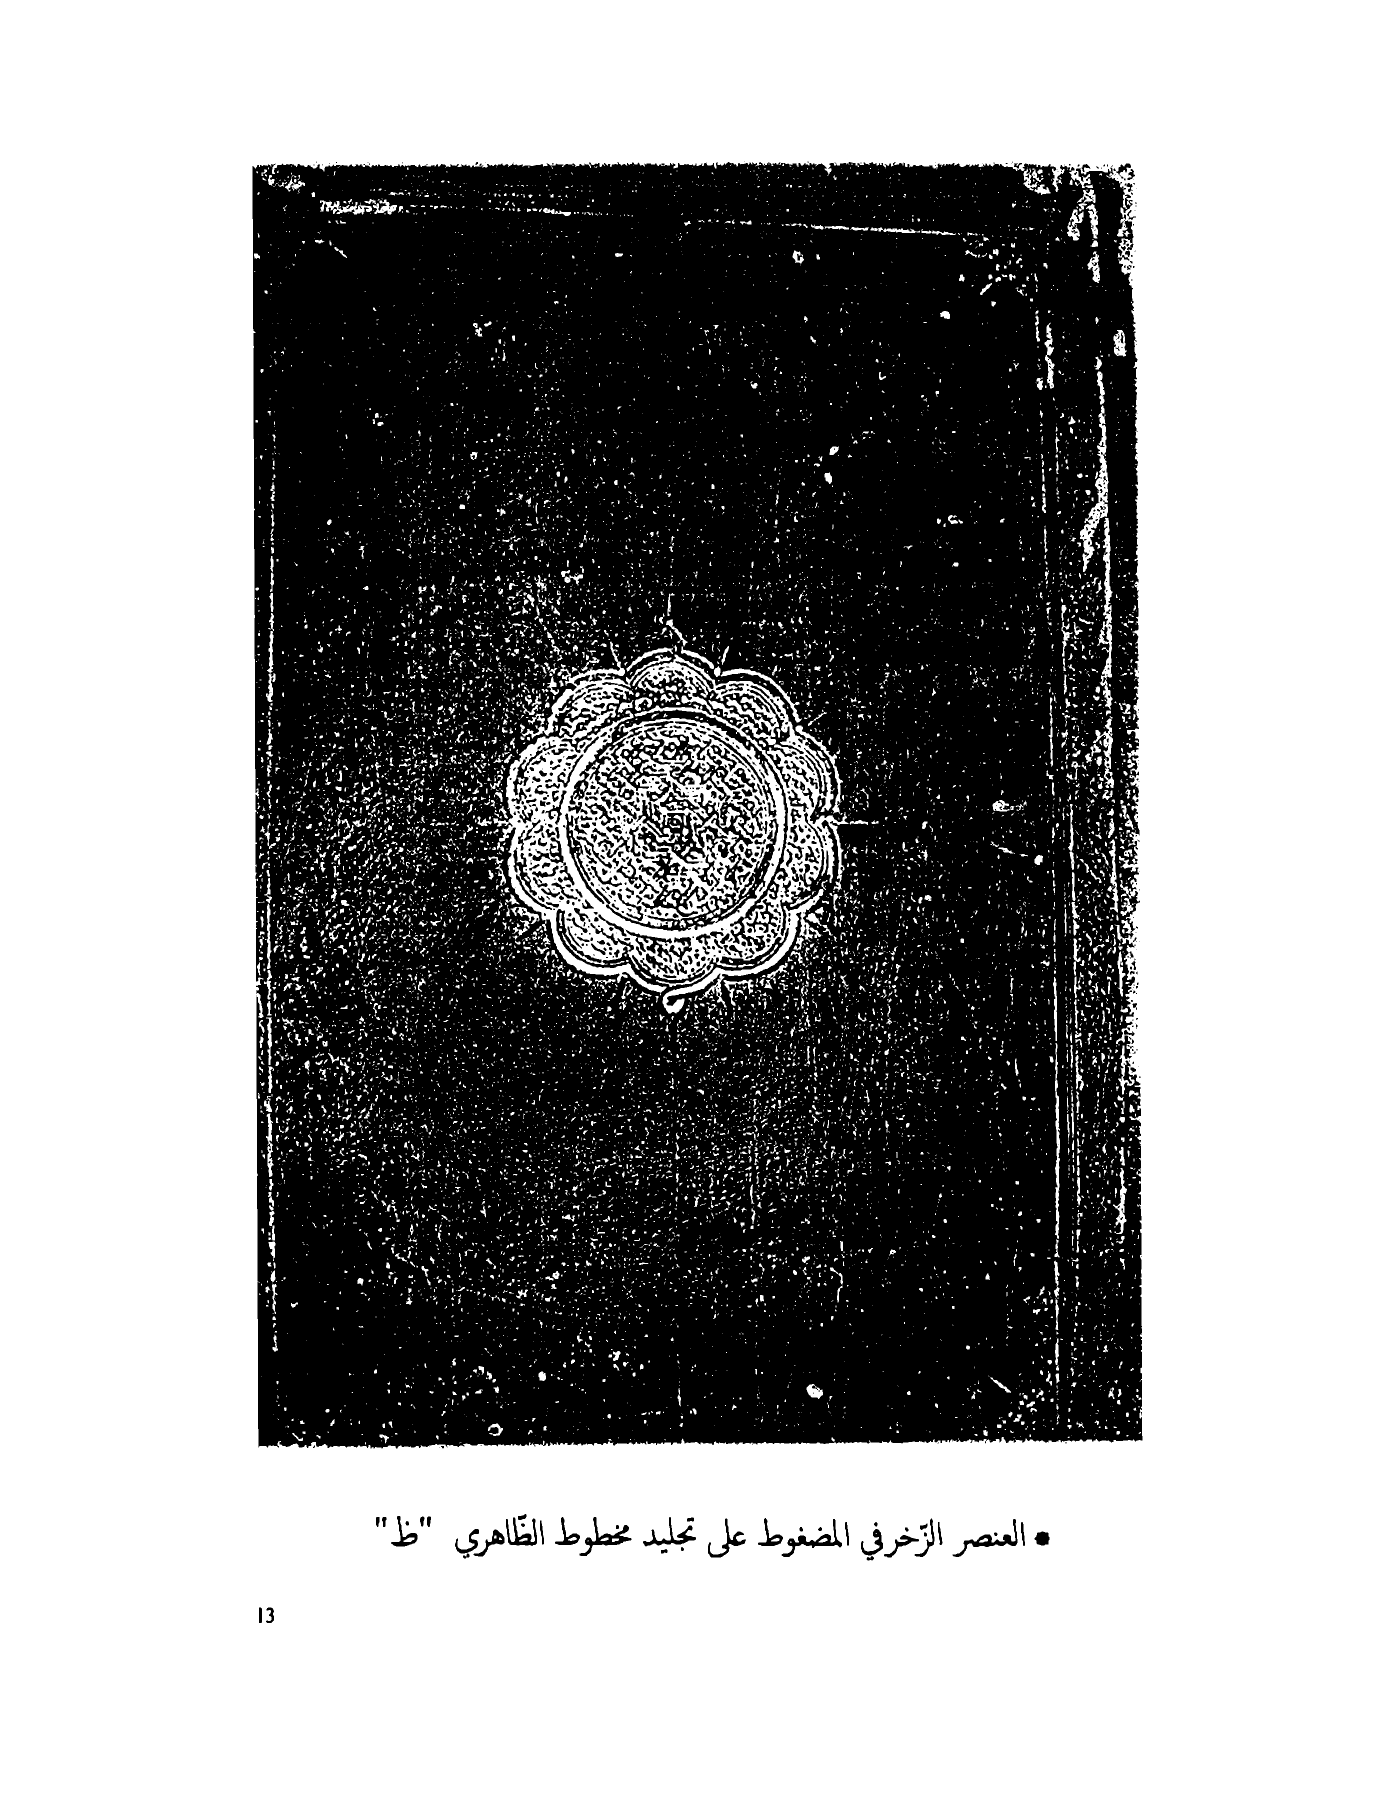 • العنصر الزّخرفي المضغوط على تجليد مخطوط الظّاهري "ظ"
13